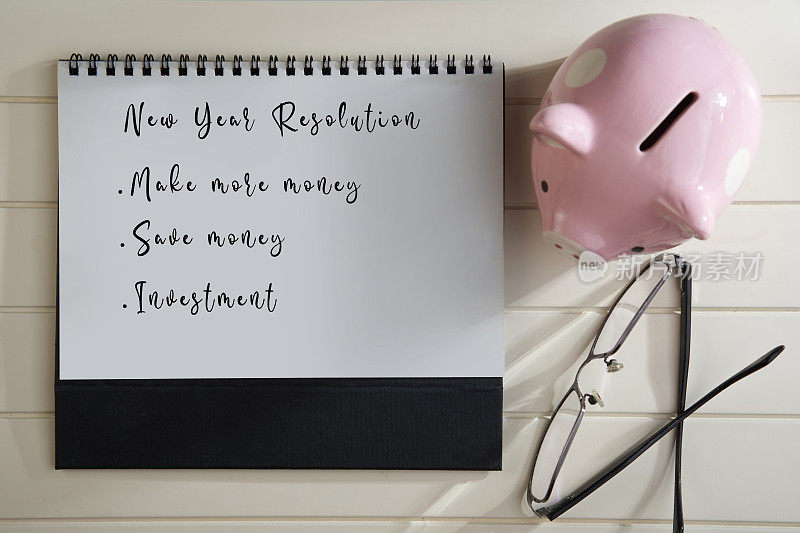 New Year Resolution
.Make more money
.Save money
.Investment
new 新图素材